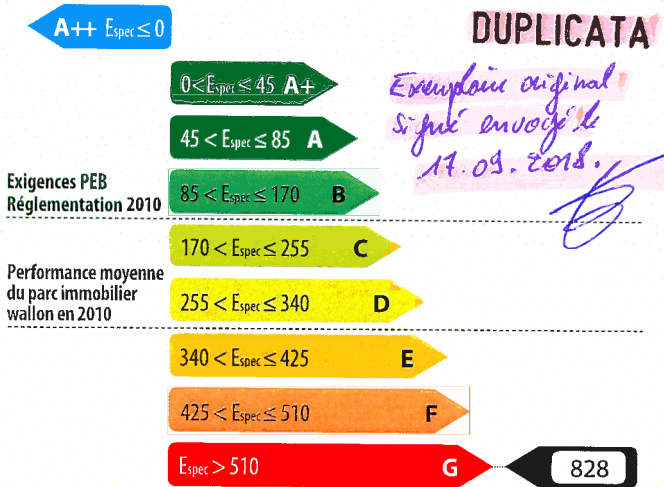 A++ Espec ≤ 0
DUPLICATA
Exemplaire original
Signé envoyé le
17.09.2018.
0 < Espec ≤ 45 A+
45 < Espec ≤ 85 A
Exigences PEB
Réglementation 2010
85 < Espec ≤ 170 B
170 < Espec ≤ 255 C
Performance moyenne
du parc immobilier
wallon en 2010
255 < Espec ≤ 340 D
340 < Espec ≤ 425 E
425 < Espec ≤ 510 F
Espec > 510 G
828